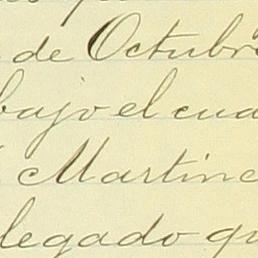 de Octubre
bajo el cua
Martine
legado qu